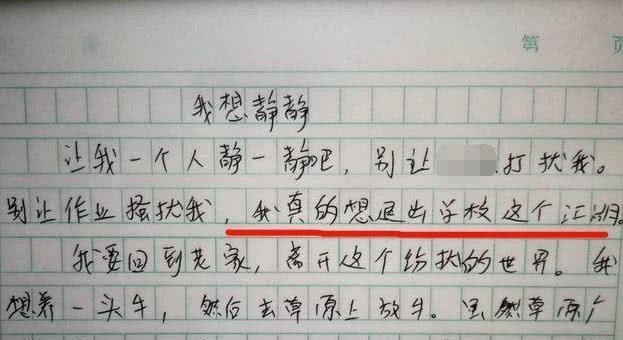 第 页
我想静静
让我一个人静一静吧，别让 打扰我。
别让作业骚扰我，我真的想退出学校这个江湖。
我要回到老家，离开这个纷扰的世界。我
想养一头牛，然后去草原上放牛。虽然草原广